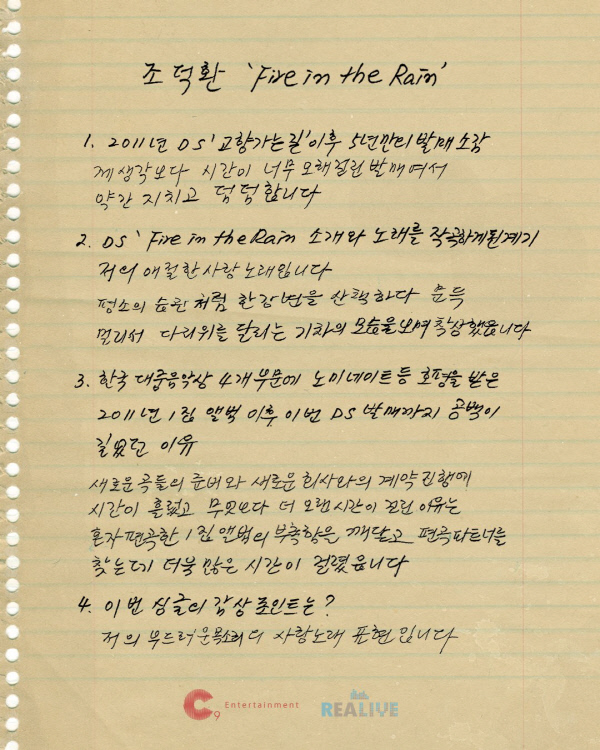 조덕환 'Fire in the Rain'
1. 2011년 DS '고향가는길'이후 5년만의 발매 소감
제 생각보다 시간이 너무 오래걸린 발매여서
약간 지치고 덤덤합니다
2. DS 'Fire in the Rain 소개와 노래를 작곡하게된계기
저의 애절한 사랑 노래입니다
평소의 습관처럼 한강변을 산책하다 문득
멀리서 다리위를 달리는 기차의 모습을보며 착상했읍니다
3. 한국 대중음악상 4개부문에 노미네이트 등 호평을 받은
2011년 1집 앨범 이후 이번 DS 발매까지 공백이
길었던 이유
새로운곡들의 준비와 새로운 회사와의 계약 진행에
시간이 흘렀고 무엇보다 더 오랜시간이 걸린 이유는
혼자편곡한 1집 앨범의 부족함은 깨닫고 편곡파트너를
찾는데 더욱 많은 시간이 걸렸읍니다
4. 이번 싱글의 감상 포인트는?
저의 부드러운목소리의 사랑노래 표현입니다
C9 Entertainment
REALIVE